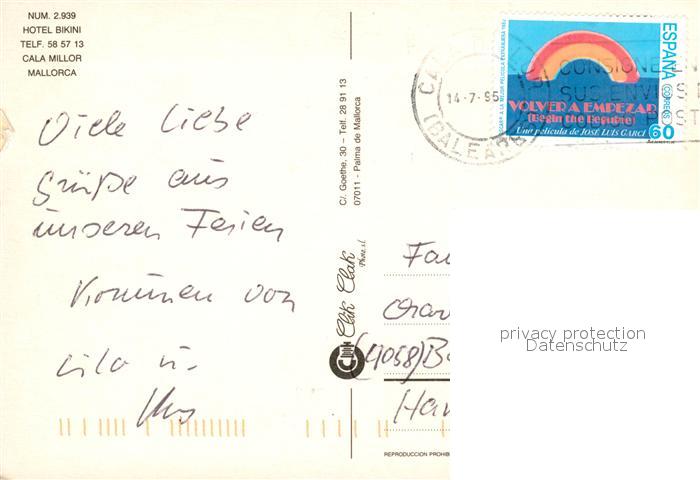 NUM. 2.939
HOTEL BIKINI
TELF. 58 57 13
CALA MILLOR
MALLORCA
Viele liebe
Grüße aus
unseren Ferien
von
u.
C/. Goethe, 30 – Telf. 28 91 13
07011 - Palma de Mallorca
Clik Clak
Phot. s.l.
14-7-95
(BALEARES)
CONSIGNE EN
SUS ENVIOS
ESPAÑA
CORREOS
60
OSCAR A LA MEJOR PELICULA EXTRANJERA 1982
VOLVER A EMPEZAR
(Begin the Beguine)
Una película de JOSÉ LUIS GARCI
Fa
(4058)
Han
privacy protection
Datenschutz
REPRODUCCION PROHIB